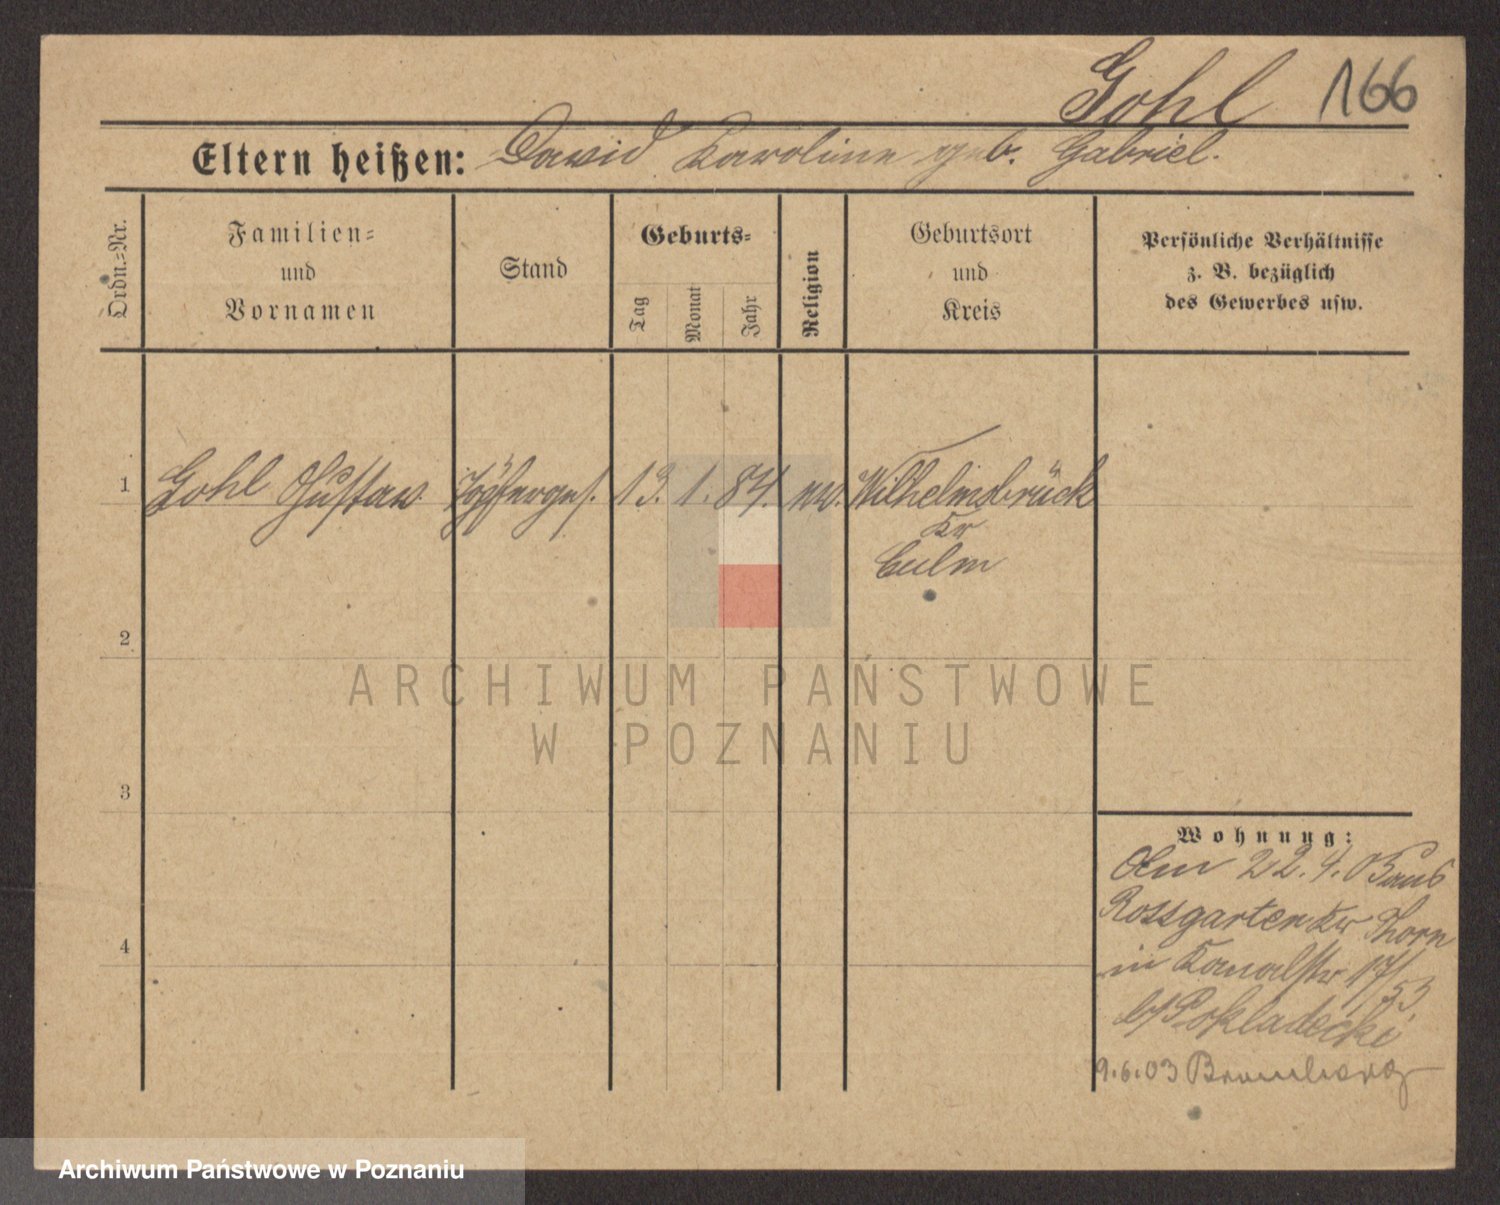 Gohl 166
Eltern heißen: David Karoline geb. Gabriel.
Ordn.=Nr.
Familien=
und
Vornamen
Stand
Geburts=
Tag
Monat
Jahr
Religion
Geburtsort
und
Kreis
Persönliche Verhältnisse
z. B. bezüglich
des Gewerbes usw.
1 Gohl Gustav Töpferges. 13. 1. 84. ev. Wilhelmsbrück
Kr
Culm
2
ARCHIWUM PAŃSTWOWE
W POZNANIU
3
Wohnung:
Am 22.4.03 aus
Rossgarten Kr Thorn
in Kanalstr 17/53
b/ Pokladecki
4
9.6.03 Bromberg
Archiwum Państwowe w Poznaniu